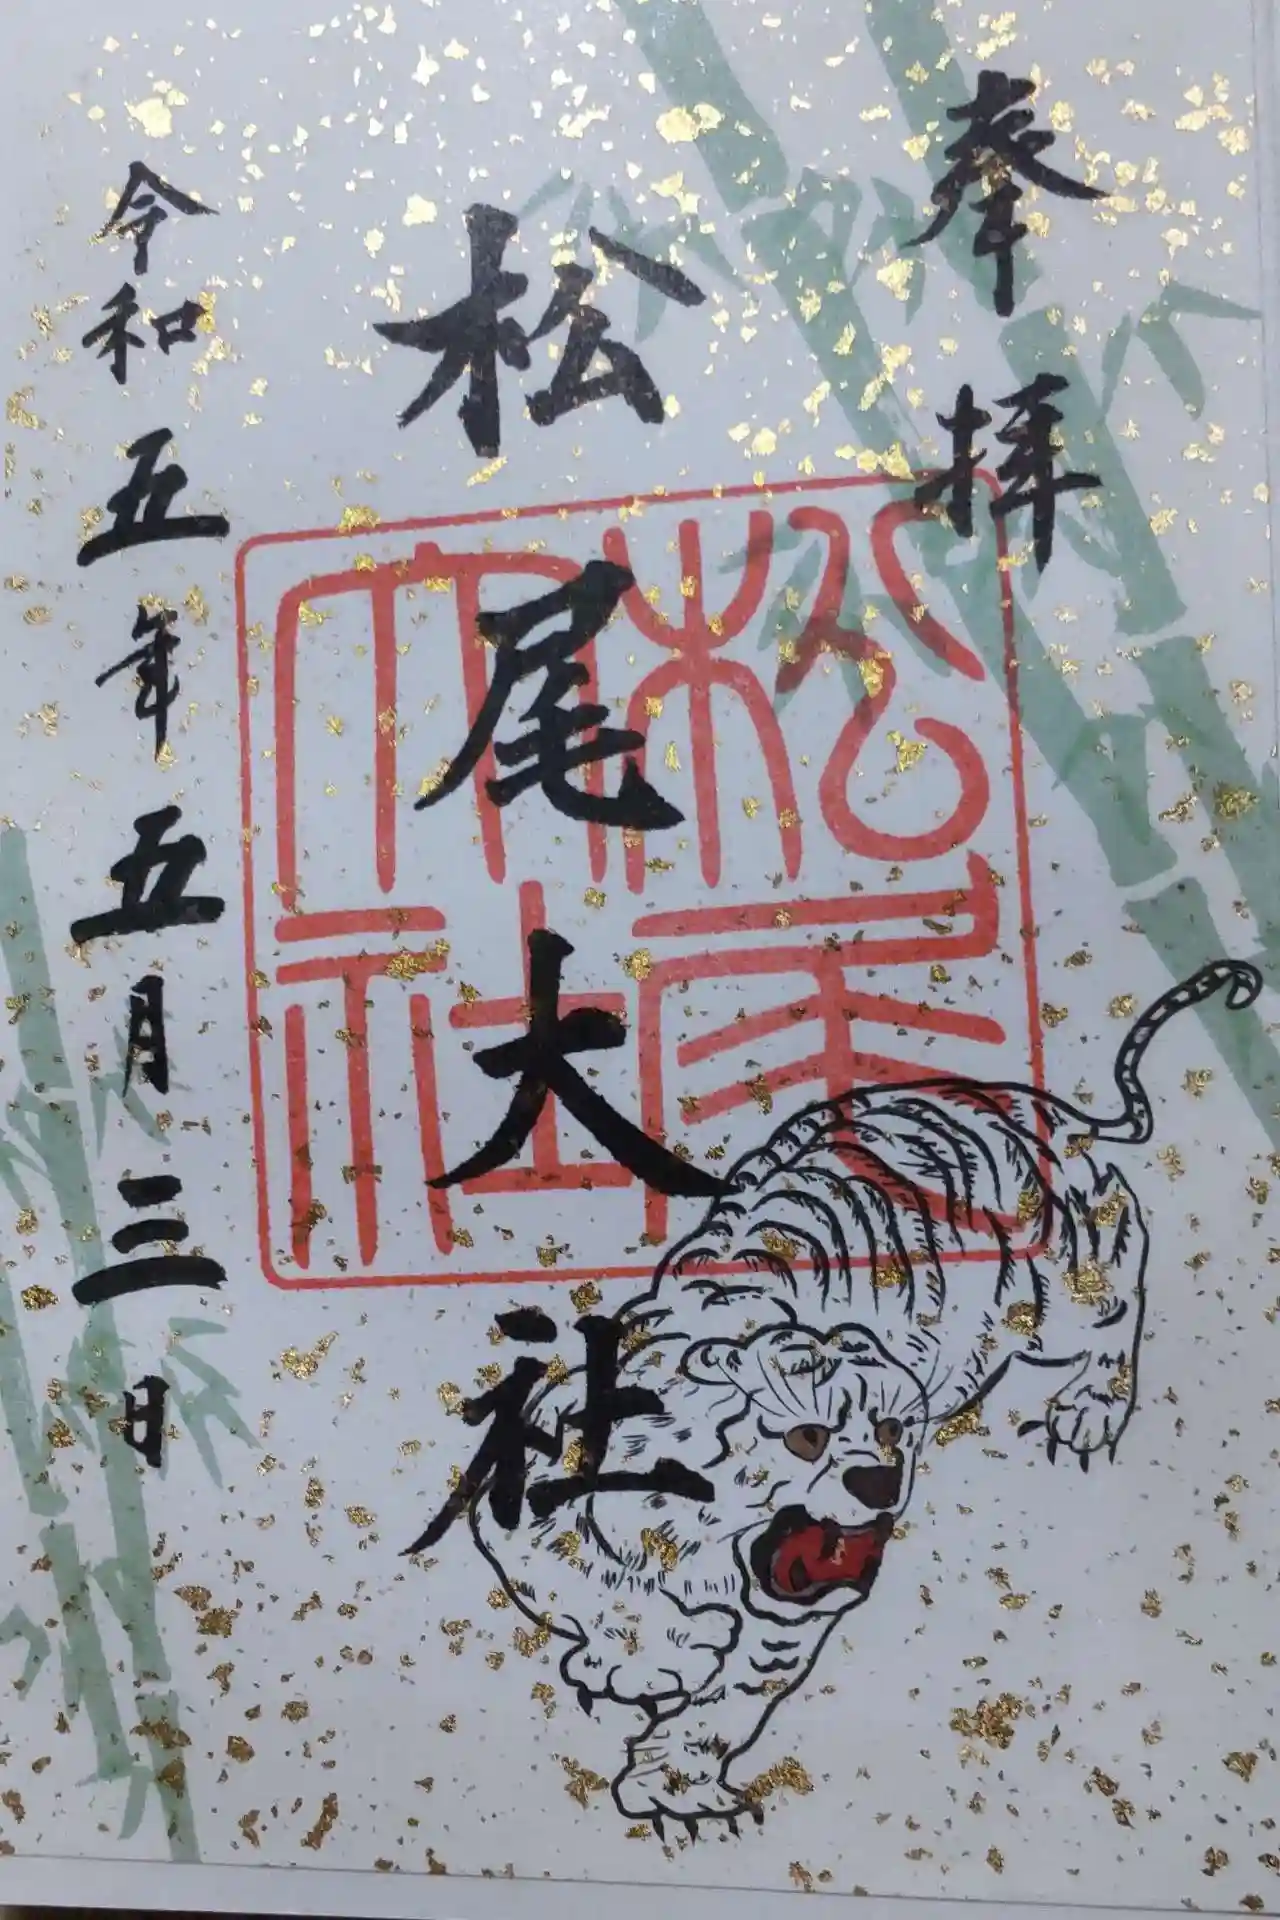 奉拝
松尾大社
松尾大神社
令和五年五月三日